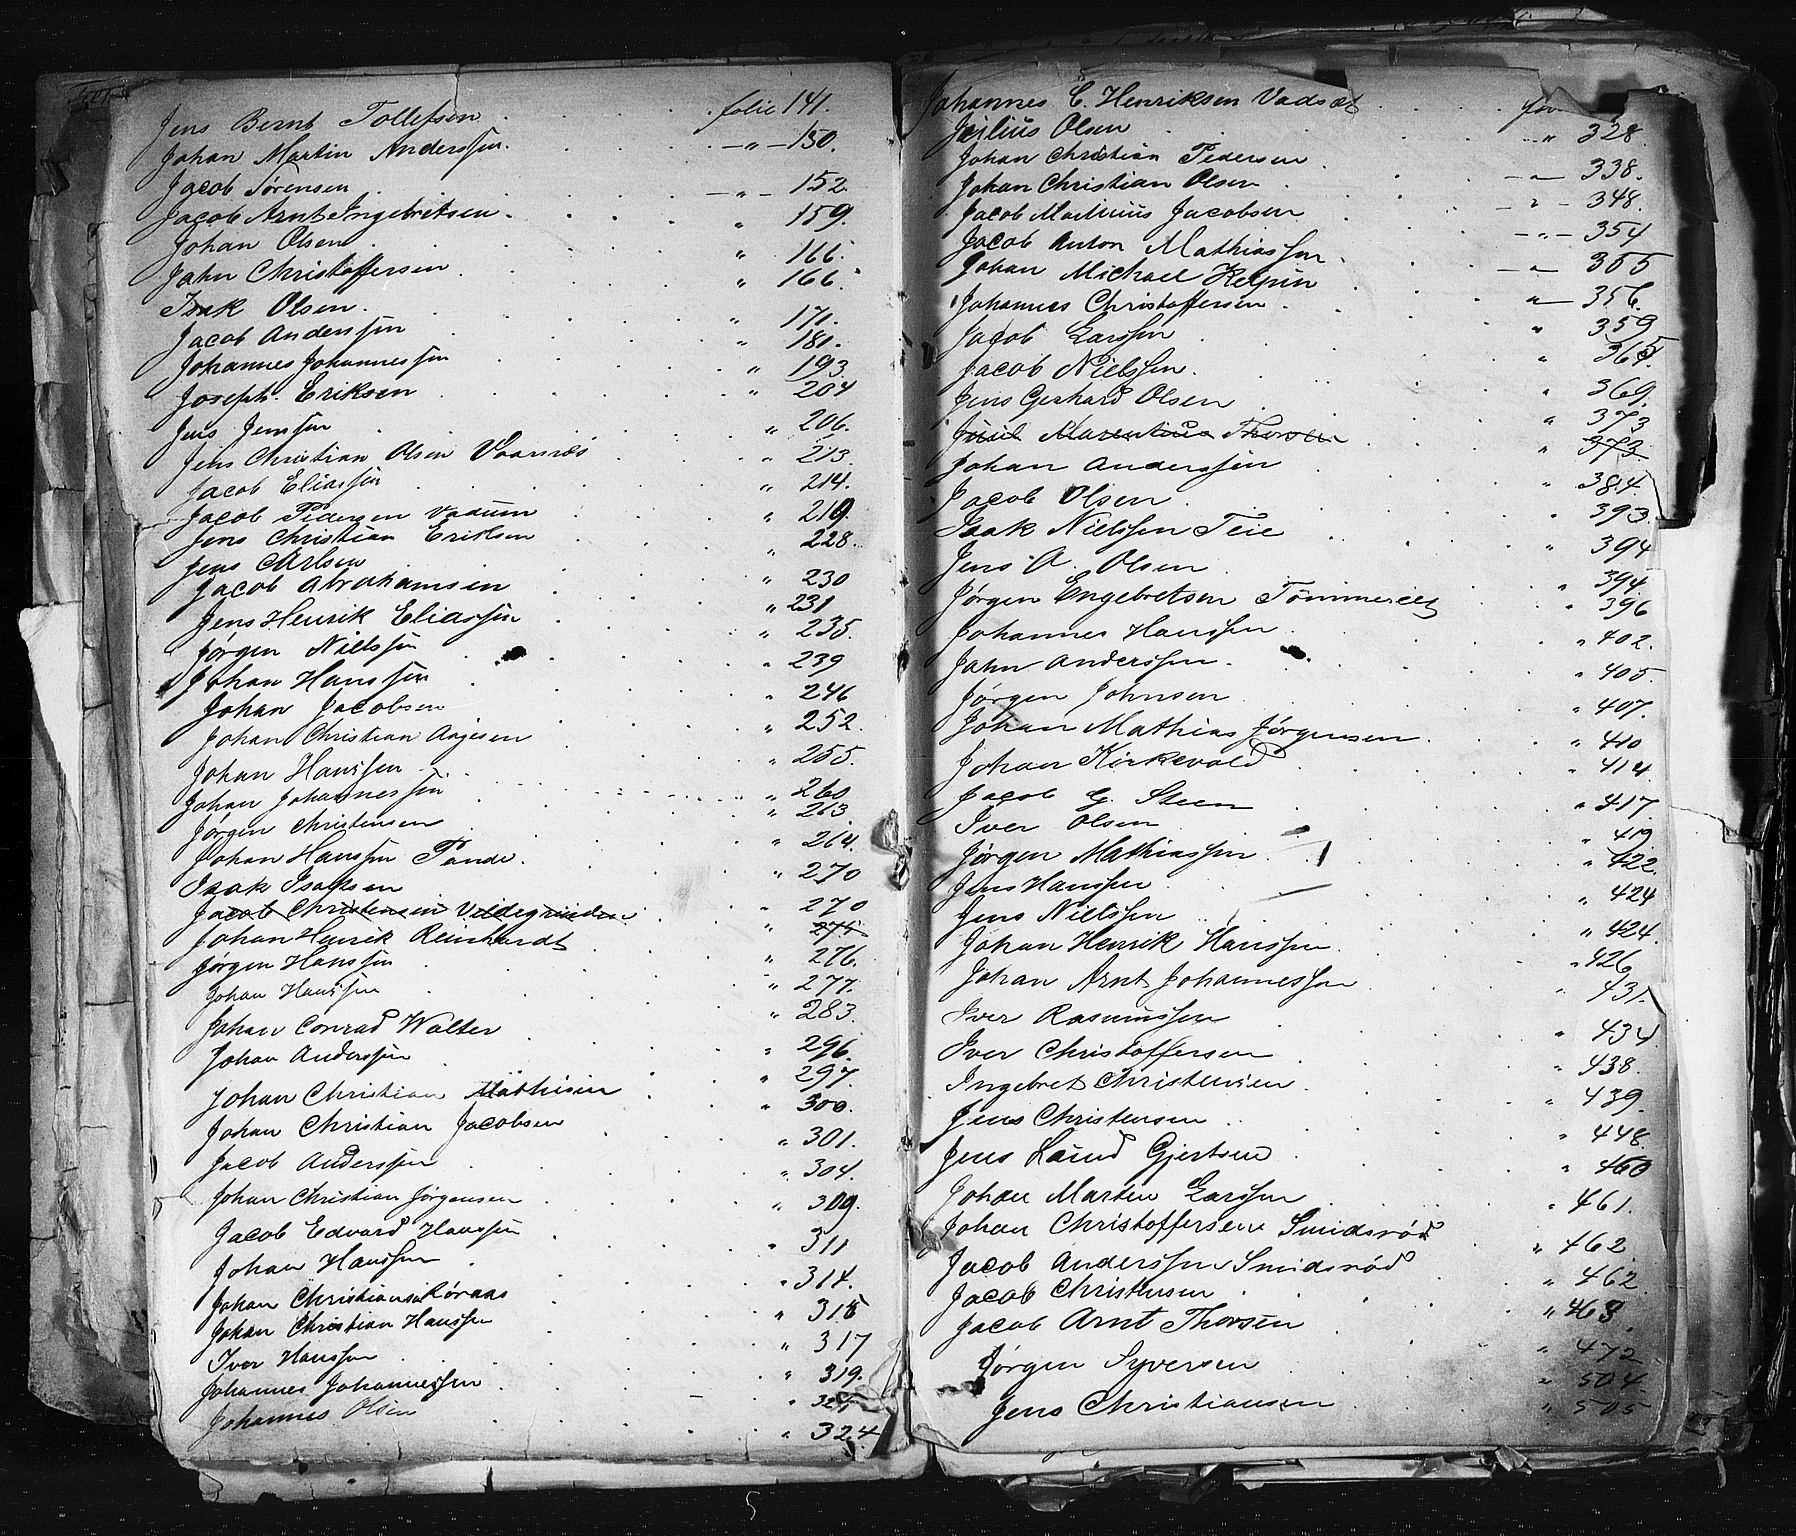 Jens Bernt Tollefsen folio 141.
Johan Martin Anderssen. — " — 150.
Jacob Sørensen — " — 152.
Jacob Arnt Ingebretsen. " 159.
Johan Olsen " 166.
Jahn Christoffersen " 166.
Isak Olsen. " 171.
Jacob Anderssen " 181.
Johannes Johannessen " 193.
Joseph Eriksen " 204
Jens Jenssen " 206.
Jens Christian Olsen Vaarnæs " 213.
Jacob Eliassen " 214.
Jacob Pedersen Vadum " 219.
Jens Christian Eriksen " 228.
Jens Carlsen " 230
Jacob Abrahamsen " 231
Jens Henrik Eliassen " 235.
Jørgen Nielssen " 239
Johan Hanssen " 246
Johan Jacobsen " 252.
Johan Christian Aagesen " 255.
Johan Hanssen " 260
Johan Johannessen " 263.
Jørgen Christensen " 264.
Johan Hanssen Pande. " 270
Isak Isaksen " 270
Jacob Christensen
Johan Henrik Reinhardt " 276.
Jørgen Hanssen " 277.
Johan Hanssen " 283.
Johan Conrad Walter " 296.
Johan Anderssen " 297.
Johan Christian Mathisen " 300.
Johan Christian Jacobsen " 301.
Jacob Anderssen " 304.
Johan Christian Jørgensen " 309.
Jacob Edvard Hanssen " 311
Johan Hanssen " 314.
Johan Christiansen Røraas " 315
Johan Christian Hanssen " 317
Iver Hanssen " 319.
Johannes Johannessen "
Johannes Olsen " 324
Johannes C. Henriksen Vadsæt
Julius Olsen " 328.
Johan Christian Pedersen 338.
Johan Christian Olsen — " — 348.
Jacob Jacobsen — " — 354
Jacob Anton Mathiassen — " — 355
Johan Michael " — 356.
Johannes Christoffersen " 359
Jacob Larssen "
Jacob Nielssen. " 369.
Jens Gerhard Olsen " 373
Marentius Thorsen " 373.
Johan Anderssen " 384.
Jacob Olsen " 393.
Isak Nielssen Teie " 394
Jens A. Olsen " 394
Jørgen Engebretsen " 396
Johannes Hanssen " 402.
Jahn Anderssen. " 405.
Jørgen Johnsen " 407.
Johan Mathias Jørgensen " 410
Johan Kirkevold " 414
Jacob G. Steen " 417.
Iver Olsen " 419
Jørgen Mathiassen " 422.
Jens Hanssen " 424
Jens Nielssen " 424.
Johan Henrik Hanssen " 426
Johan Arnt Johannessen " 431.
Iver Rasmussen " 434
Iver Christoffersen " 438.
Ingebret Christensen " 439.
Jens Christensen " 448.
Jens Laind Gjertsen " 460
Johan Marten Larssen " 461.
Johan Christoffersen Smidsrød " 462.
Jacob Anderssen Smidsrød " 462
Jacob Christensen " 463.
Jacob Arnt Thorsen " 472
Jørgen Syversen " 504.
Jens Christiansen " 505
5